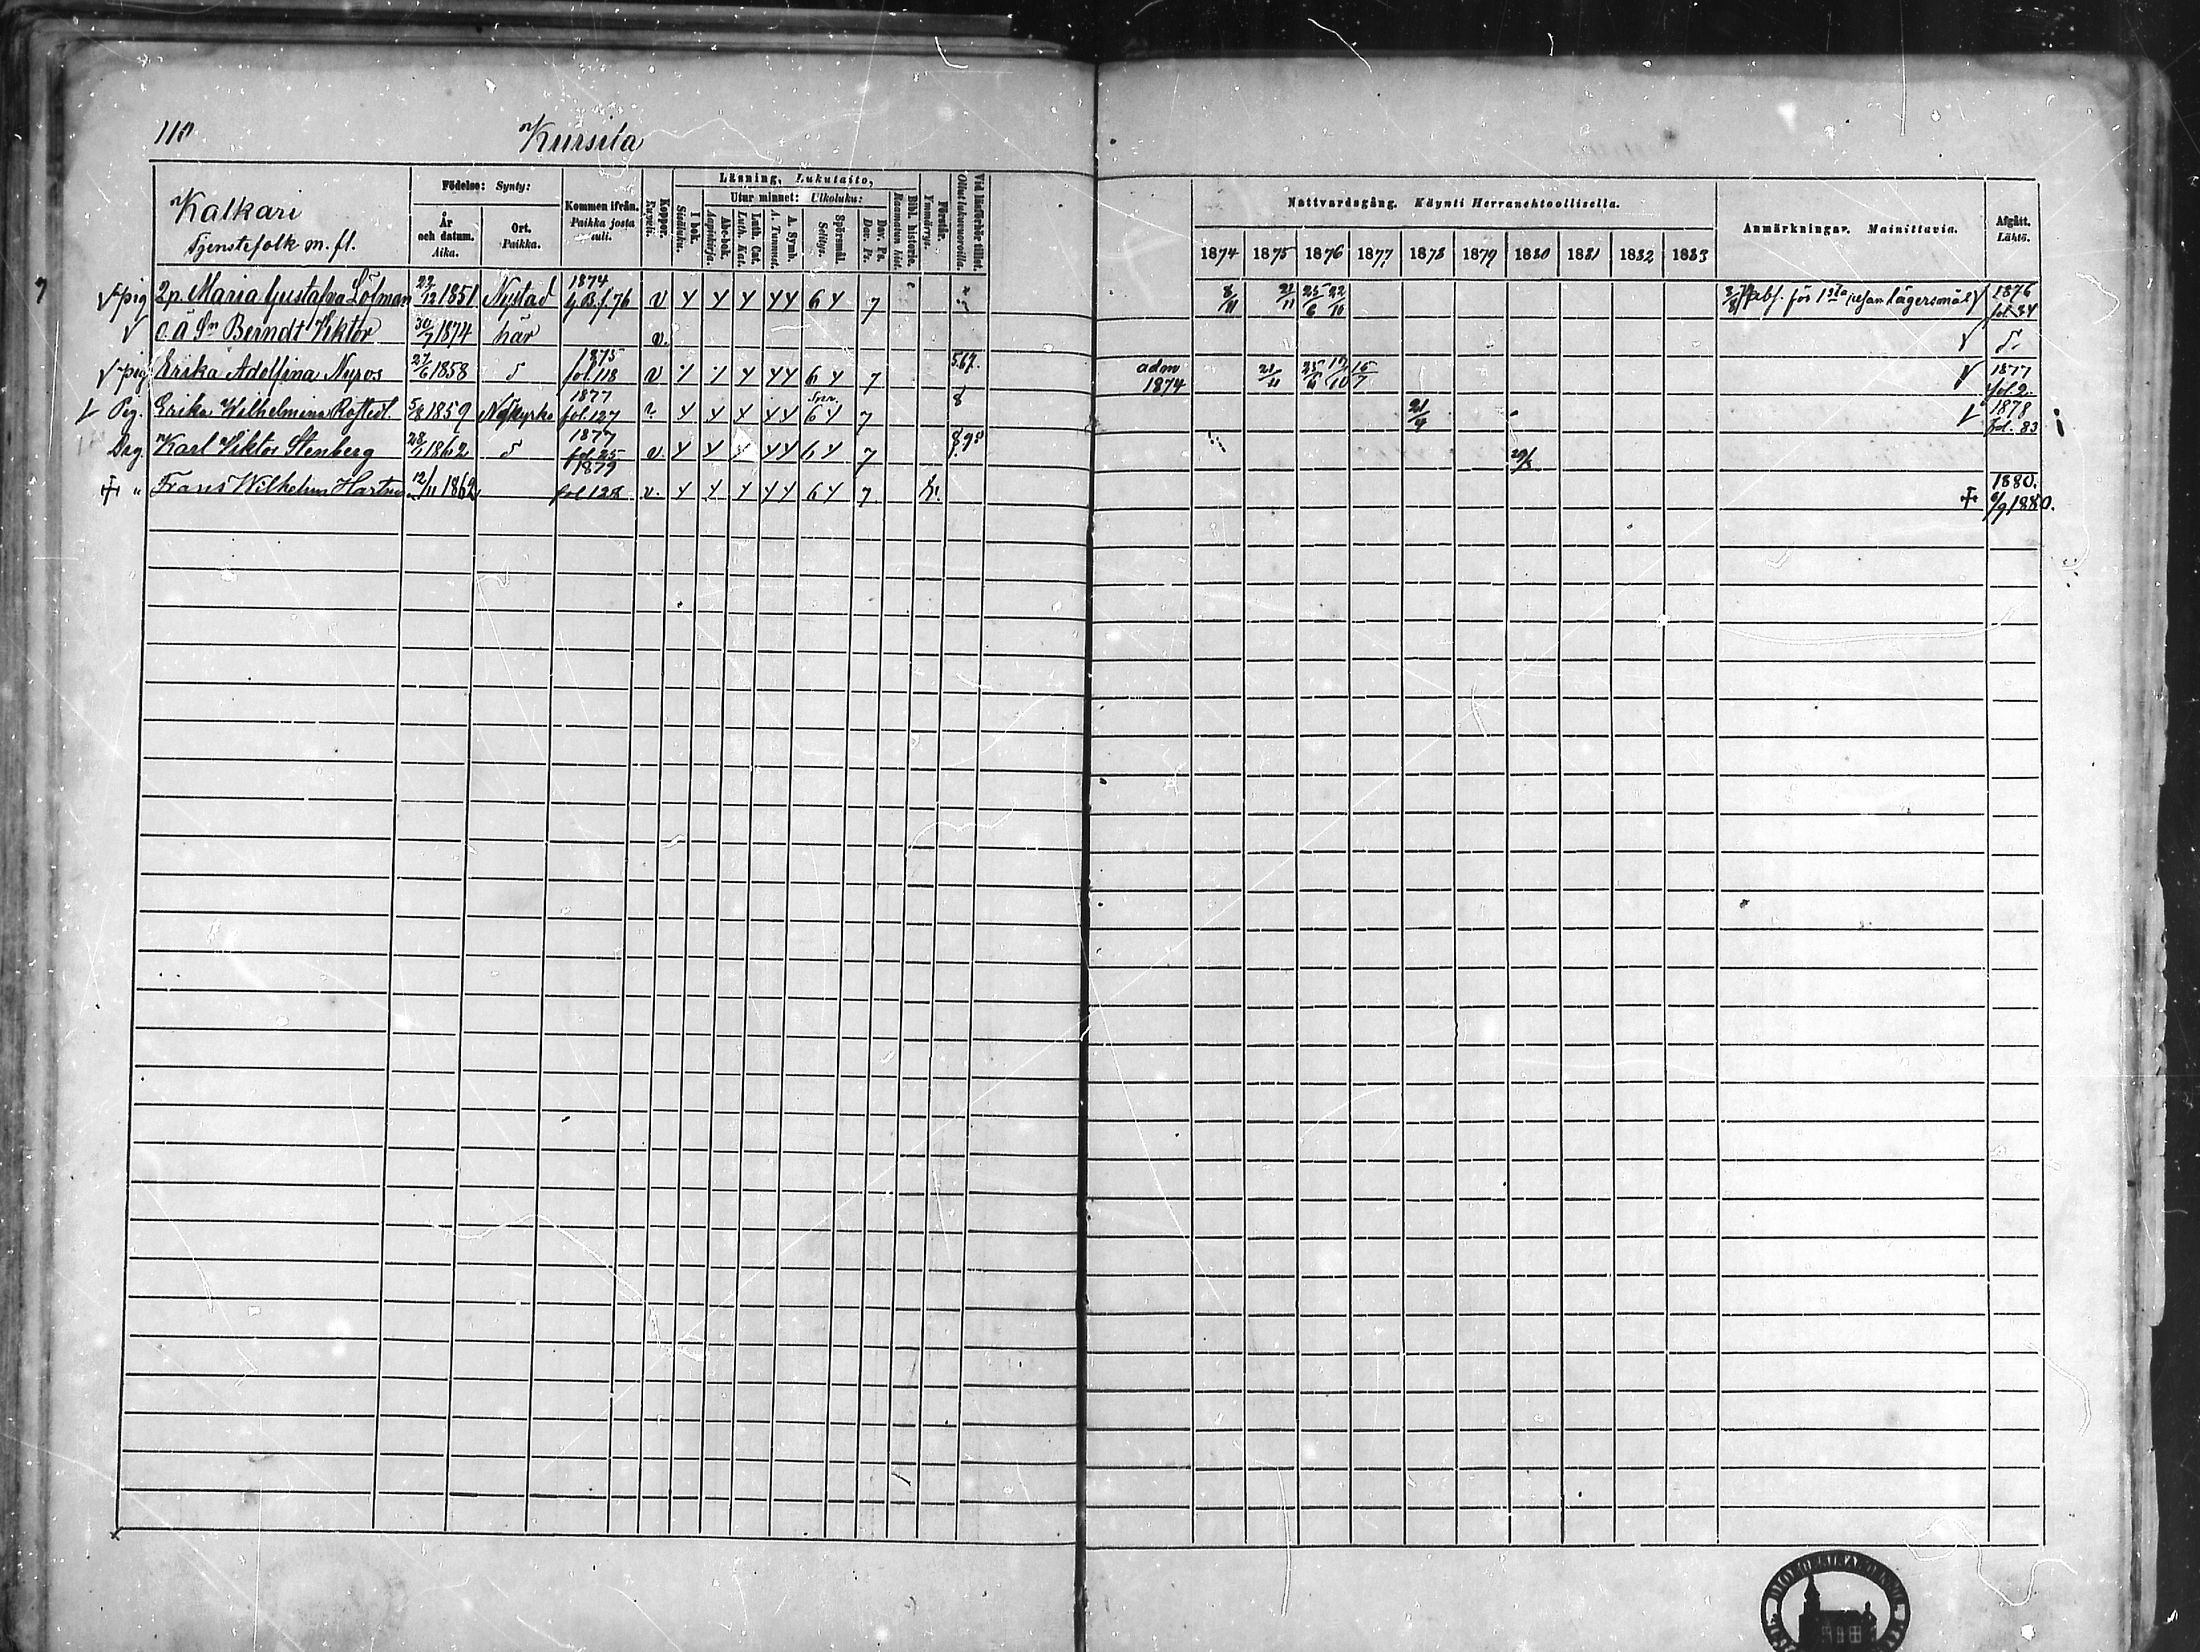 110 Kursila
Kalkari
Tjenstefolk m. fl.
Födelse: Synty:
År och datum. Aika.
Ort. Paikka.
Kommen ifrån. Paikka josta tuli.
Koppor. Rupuli.
Läsning, Lukutaito,
I bok. Sisäluku.
Utur minnet: Ulkoluku:
Abc-bok. Aapiskirja.
Luth. Cat. Luth. Kat.
A. Symb. A. Tunnust.
Spörsmål. Selitys.
Dav. Ps. Dav. Ps.
Bibl. historie. Raamatun hist.
Förstår. Ymmärrys.
Vid läsförhör tillst. Ollut lukuvuoroilla.
Nattvardsgång. Käynti Herranehtoollisella.
1874 1875 1876 1877 1878 1879 1880 1881 1882 1883
Anmärkningar. Mainittavia.
Afgått. Lähtö.
pig 2p. Maria Gustafva Löfman 22/12 1851 Nystad 1874 f. 76 v 6 7 8/11 21/11 25/6 22/10 abs. för 1sta lägersmål 1876 fol. 34
o. ä Sn Berndt Viktor 30/7 1874 här v.
pig Erika Adolfina Nyros 27/6 1858 1875 fol. 118 v 6 7 5.67. adm 1874 21/11 25/6 15/7 1877 fol. 2.
Pig. Erika Wilhelmina 5/8 1859 Nykyrko 1877 fol. 127 6 7 8 21/4 1878 fol. 83
Drg Karl Viktor Stenberg 28/1 1862 1877 fol. 25 v 6 7 8.98
" Frans Wilhelm 12/11 1862 1879 fol 128 v. 6 7 1880. 6/9 1880.